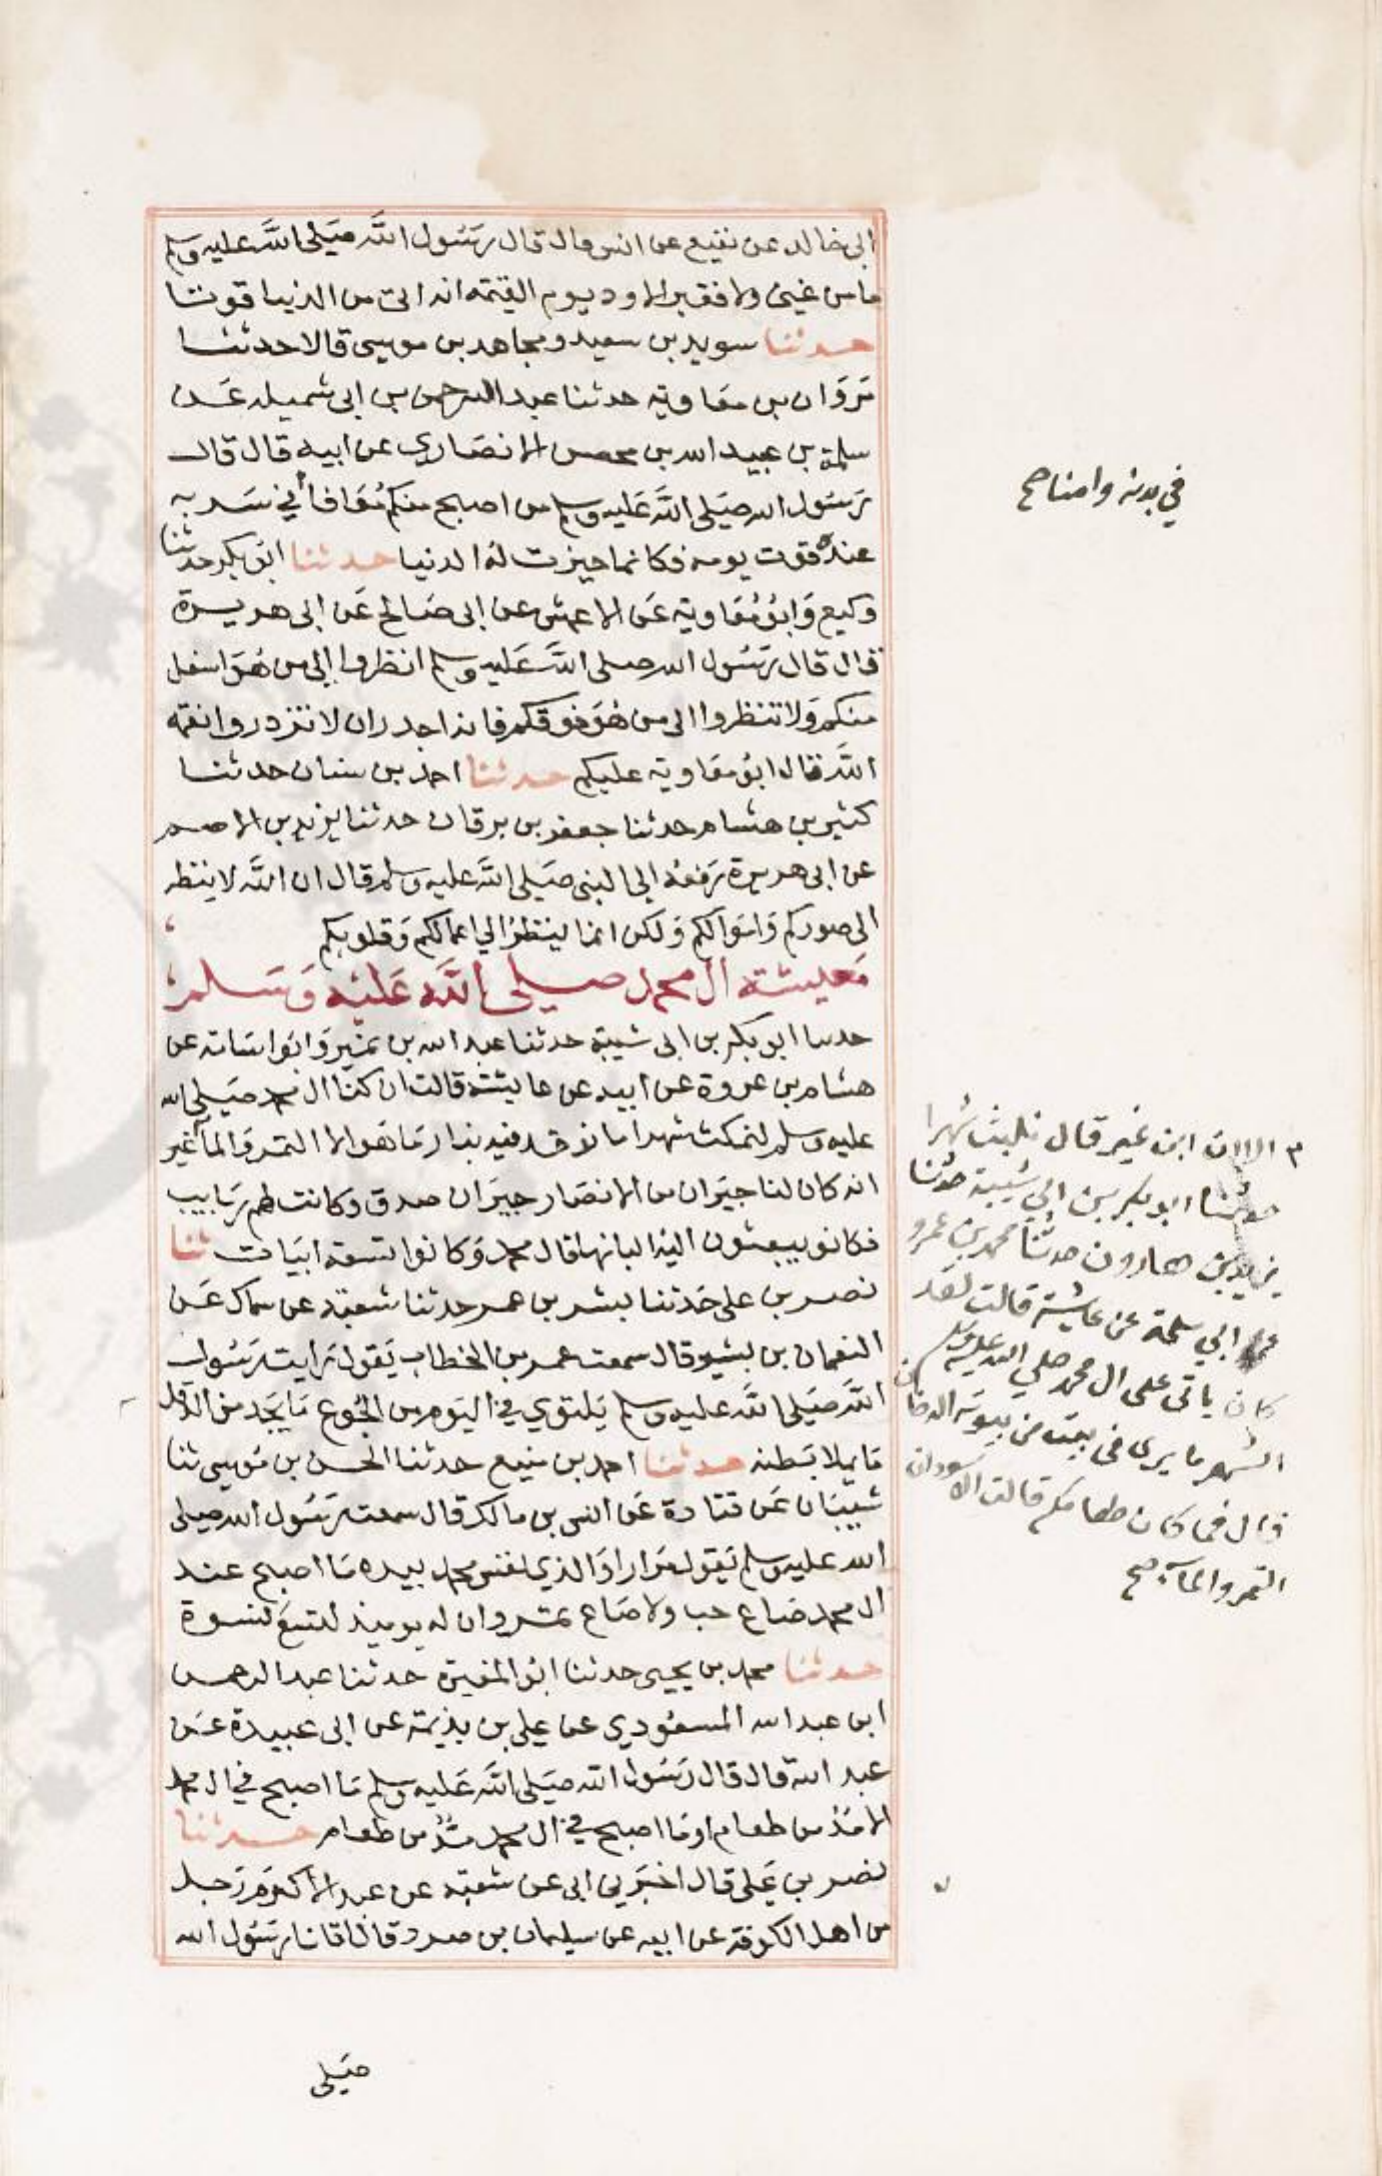 ابى خالد عن نفيع عن انس قال قال رَسُول اللَّه صَلى اللَّه عليه وسلم
ما من غنى ولا فقير الا ود يوم القيمة انه اتى من الدنيا قوتا
حدثنا سويد بن سعيد ومجاهد بن موسى قالا حدثنا
مَروَان بن معَاوية حدثنا عبد الرحمن بن ابى شميله عَن
سلمة بن عبيد الله بن محصن الانصَاري عن ابيه قال قال
رَسُول الله صَلى اللَّه عَليه وسلم من اصبح منكم مُعَافا في سَربه
عنده قوت يومه فكانما حيزت لهُ الدنيا حدثنا ابُو بكر حدثنا
وكيع وَابُو مُعَاوية عَن الاعمش عن ابى صَالح عَن ابى هريرة
قال قال رَسُول الله صلى اللَّه عَليه وسلم انظروا الى من هُوَ اسفل
منكم وَلا تنظروا الى من هُوَ فوقكم فانه اجدر ان لا تزدروا نعمة
اللَّه قال ابُو معَاوية عليكم حدثنا احمد بن سنان حدثنا
كثير بن هشام حدثنا جعفر بن برقان حدثنا يزيد بن الاصم
عن ابى هريرة رَفعهُ الى النبى صَلى اللَّه عليه وسلم قال ان اللَّه لا ينظر
الى صوركم وَاموَالكم وَلكن انما ينظرُ الي اعمالكم وَقلوبكم
مَعيشة ال محمد صلى اللَّه عَليْه وَسَلم
حدثنا ابو بكر بن ابى شيبة حدثنا عبد الله بن نميْر وَابُو اسَامة عن
هشام بن عروة عن ابيه عن عايشة قالت ان كنّا ال محمد صَلى الله
عليه وسلم لنمكث شهرا ما نوقد فيه بنار مَا هُو الا التمر وَالمآ غير
انه كان لنا جيرَان من الانصَار جيرَان صدق وَكانت لهم رَبايب
فكانو يبعثون اليْه البانها قال محمد وَكانوا تسعة ابيَات ثنا
نصر بن على حَدثنا بشر بن عمر حدثنا شعبَة عن سماك عَن
النعمان بن بشير قال سمعت عمر بن الخطاب يَقول رَايت رَسُول
اللَّه صَلى اللَّه عليه وسلم يَلتوي في اليَوم من الجُوع مَا يَجد من الدّقل
مَا يملا بَطنه حدثنا احمد بن منيع حدثنا الحسن بن مُوسى ثنا
شيبَان عَن قتادة عَن انس بن مالك قال سمعت رَسُول الله صلى
الله عليه وسلم يَقول مرَارا وَالذي نفس محمد بيده مَا اصبح عند
ال محمد صَاع حب ولا صَاع تمر وان له يوميذ لتسع نسوة
حدثنا محمد بن يحيى حدثنا ابُو المغيرَة حدثنا عبد الرحمن
ابن عبد الله المسعُودي عن علي بن بذيمة عن ابى عبيدة عَن
عبد اللَّه قال قال رَسُول اللَّه صَلى اللَّه عَليه وسلم مَا اصبح في ال محمد
الا مُدّ من طعام او مَا اصبح في ال محمد مُدّ من طعام حدثنا
نصر بن عَلى قال اخبرَني ابى عن شعبَة عن عبد الاكرَم رَجل
من اهل الكوفة عن ابيه عن سليمان بن صرد قال اتانا رَسُول الله
صَلى
في بدنه وامنا صح
الا ان ابن نمير قال نلبث شهرا
حدثنا ابو بكر بن ابي شيبة حدثنا
يزيد بن هارون حدثنا محمد بن عمرو
عن ابي سلمة عن عايشة قالت لقد
كان ياتى على ال محمد صلى الله عليه وسلم
الشهر ما يرى في بيت من بيوته الدخان
قال فما كان طعامكم قالت الاسودان
التمر والمآ صح